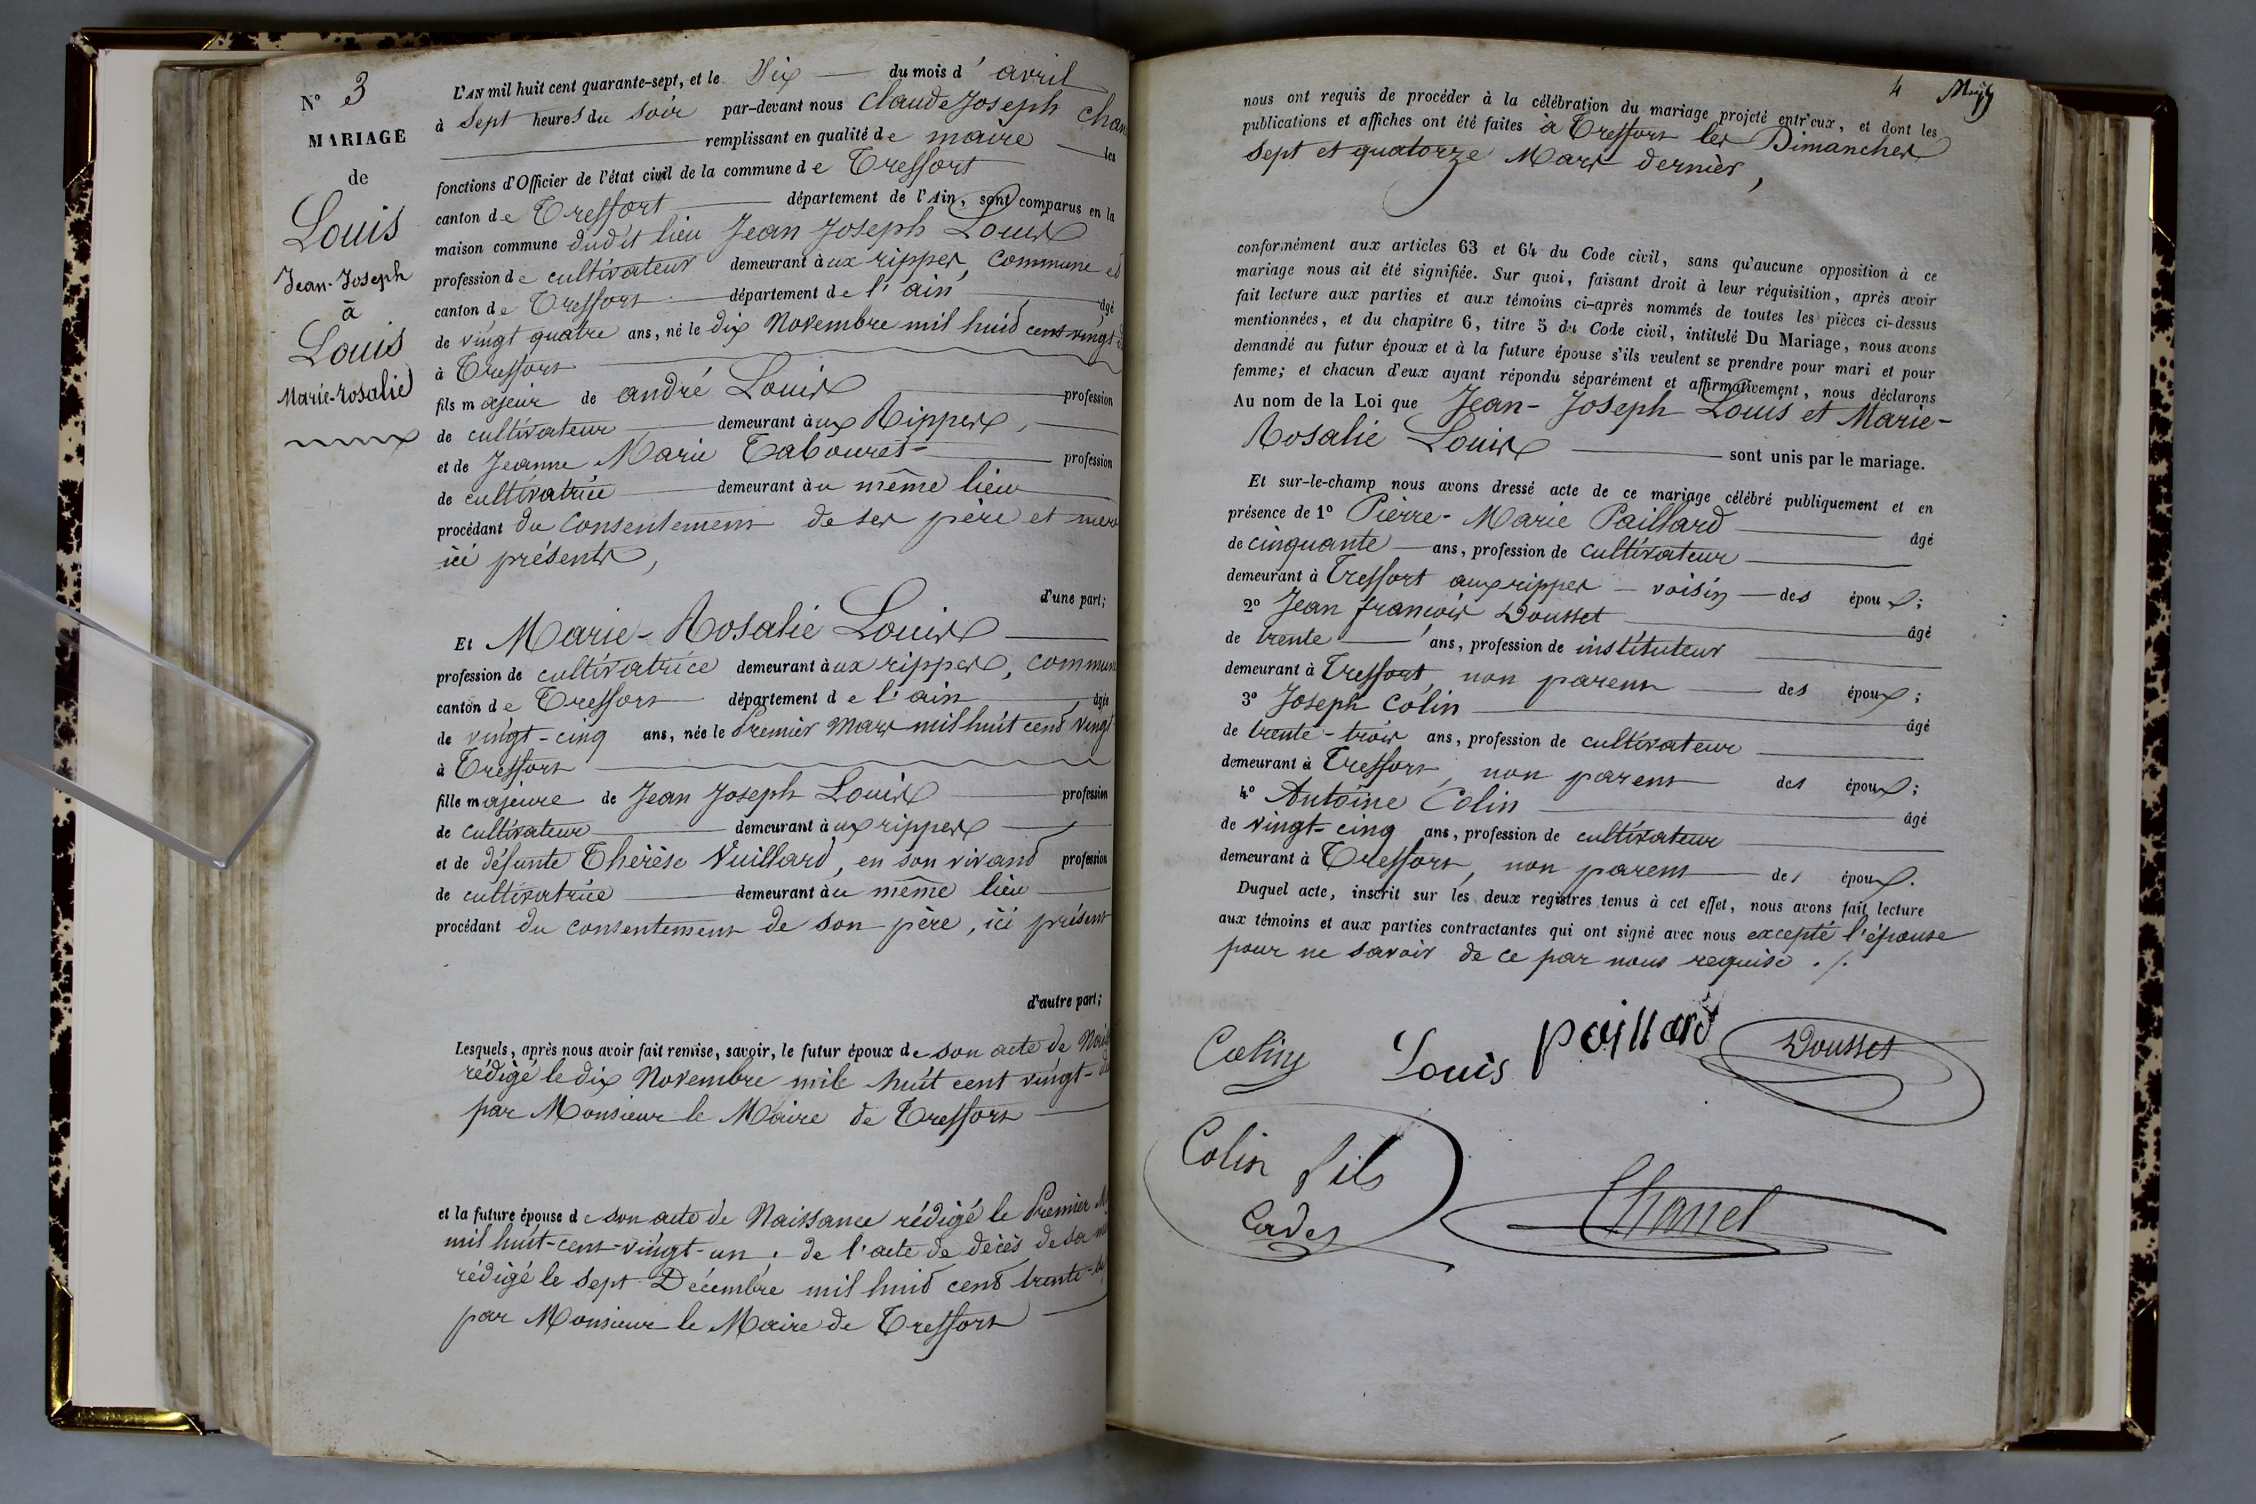 N° 3
MARIAGE
de
Louis
Jean-Joseph
à
Louis
Marie-Rosalie
L'AN mil huit cent quarante-sept, et le Dix du mois d' avril
à Sept heures du soir par-devant nous Claude Joseph Chan
remplissant en qualité de maire les
fonctions d'Officier de l'état civil de la commune de Treffort
canton de Treffort département de l'Ain, sont comparus en la
maison commune dudit lieu Jean Joseph Louis
profession de cultivateur demeurant à ux rippes, commune et
canton de Treffort département de l'ain âgé
de vingt quatre ans, né le dix Novembre mil huit cent vingt
à Treffort
fils majeur de andré Louis profession
de cultivateur demeurant à ux Rippes,
et de Jeanne Marie Tabouret profession
de cultivatrice demeurant à u même lieu
procédant du consentement de ses père et mere
ici présents,
d'une part;
Et Marie-Rosalie Louis
profession de cultivatrice demeurant à ux rippes, commun
canton de Treffort département de l'ain âgée
de vingt-cinq ans, née le Premier Mars mil huit cent vingt
à Treffort
fille majeure de Jean Joseph Louis profession
de cultivateur demeurant à ux rippes
et de défunte Thérèse Vuillard, en son vivant profession
de cultivatrice demeurant à u même lieu
procédant du consentement de son père, ici présent
d'autre part;
Lesquels, après nous avoir fait remise, savoir, le futur époux de son acte de Nais
rédigé le dix Novembre mil huit cent vingt-d
par Monsieur le Maire de Treffort
et la future épouse de son acte de Naissance rédigé le Premier M
mil huit-cent-vingt-un, de l'acte de décès de sa m
rédigé le sept Décembre mil huit cent trente
par Monsieur le Maire de Treffort
4
nous ont requis de procéder à la célébration du mariage projeté entr'eux, et dont les
publications et affiches ont été faites à Treffort les Dimanches
sept et quatorze Mars dernier,
conformément aux articles 63 et 64 du Code civil, sans qu'aucune opposition à ce
mariage nous ait été signifiée. Sur quoi, faisant droit à leur réquisition, après avoir
fait lecture aux parties et aux témoins ci-après nommés de toutes les pièces ci-dessus
mentionnées, et du chapitre 6, titre 5 du Code civil, intitulé Du Mariage, nous avons
demandé au futur époux et à la future épouse s'ils veulent se prendre pour mari et pour
femme; et chacun d'eux ayant répondu séparément et affirmativement, nous déclarons
Au nom de la Loi que Jean-Joseph Louis et Marie-
Rosalie Louis sont unis par le mariage.
Et sur-le-champ nous avons dressé acte de ce mariage célébré publiquement et en
présence de 1° Pierre-Marie Paillard âgé
de cinquante ans, profession de cultivateur
demeurant à Treffort aux rippes - voisin des époux;
2° Jean françois Dousset âgé
de trente ans, profession de instituteur
demeurant à Treffort, non parent des époux;
3° Joseph Colin âgé
de trente-trois ans, profession de cultivateur
demeurant à Treffort, non parent des époux;
4° Antoine Colin âgé
de vingt-cinq ans, profession de cultivateur
demeurant à Treffort, non parent des époux.
Duquel acte, inscrit sur les deux registres tenus à cet effet, nous avons fait lecture
aux témoins et aux parties contractantes qui ont signé avec nous excepté l'épouse
pour ne savoir de ce par nous requise ./.
Colin Louis paillard Dousset
Colin fils
Cadet
Chanel